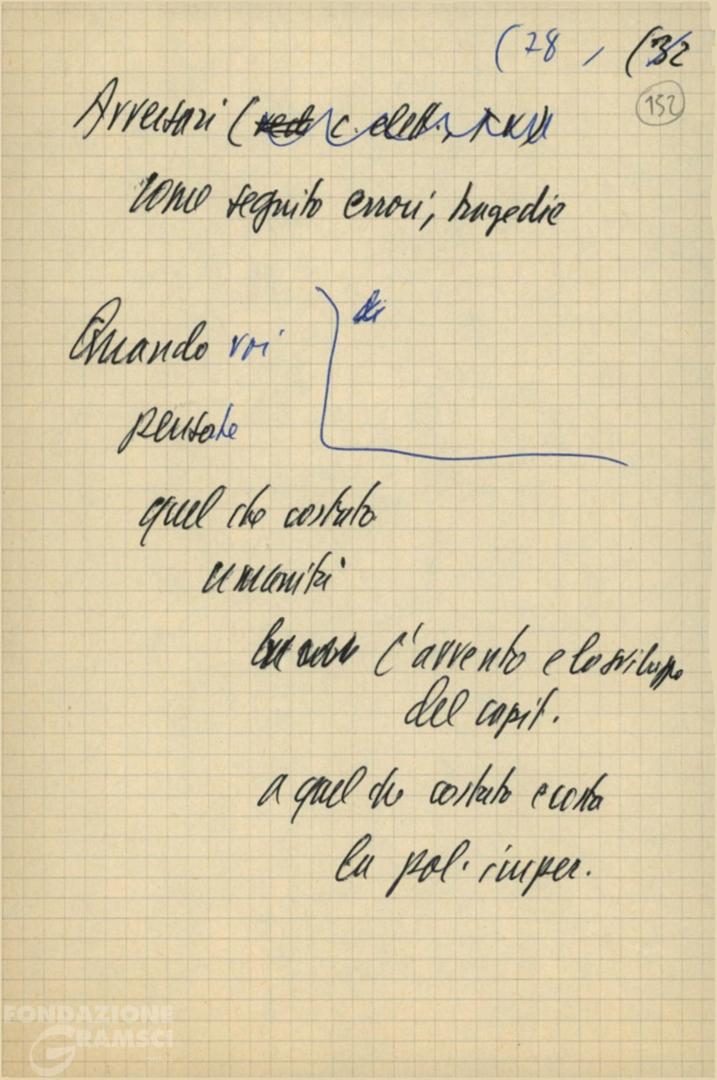 (28, (32
152
Avversari (
come seguito errori, tragedie
Quando voi
pensate
quel che costato
umanità
l'avvento e lo sviluppo
del capit.
a quel che costato e costa
la pol. imper.
FONDAZIONE
GRAMSCI